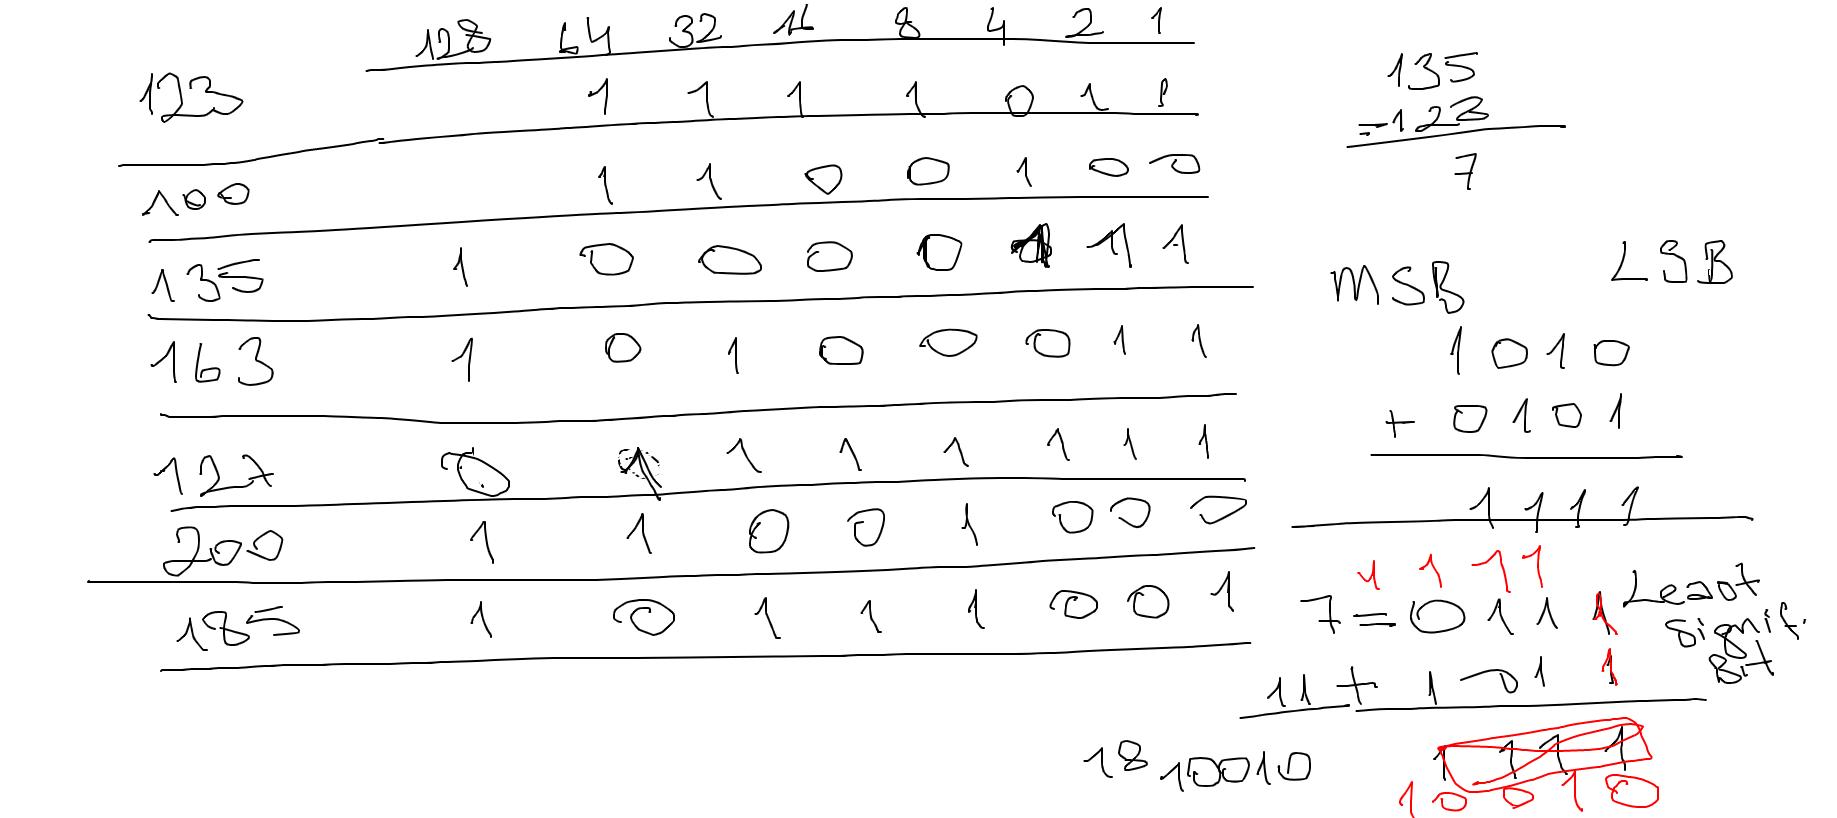 128 64 32 16 8 4 2 1
123 1 1 1 1 0 1 1
100 1 1 0 0 1 0 0
135 1 0 0 0 0 1 1 1
163 1 0 1 0 0 0 1 1
127 0 1 1 1 1 1 1 1
200 1 1 0 0 1 0 0 0
185 1 0 1 1 1 0 0 1
135
-128
7
MSB LSB
1010
+ 0101
1111
1 1 1 1
7 = 0 1 1 1 Least
signif.
Bit
11 + 1 0 1 1
1 1 1 1
18 10010
1 0 0 1 0